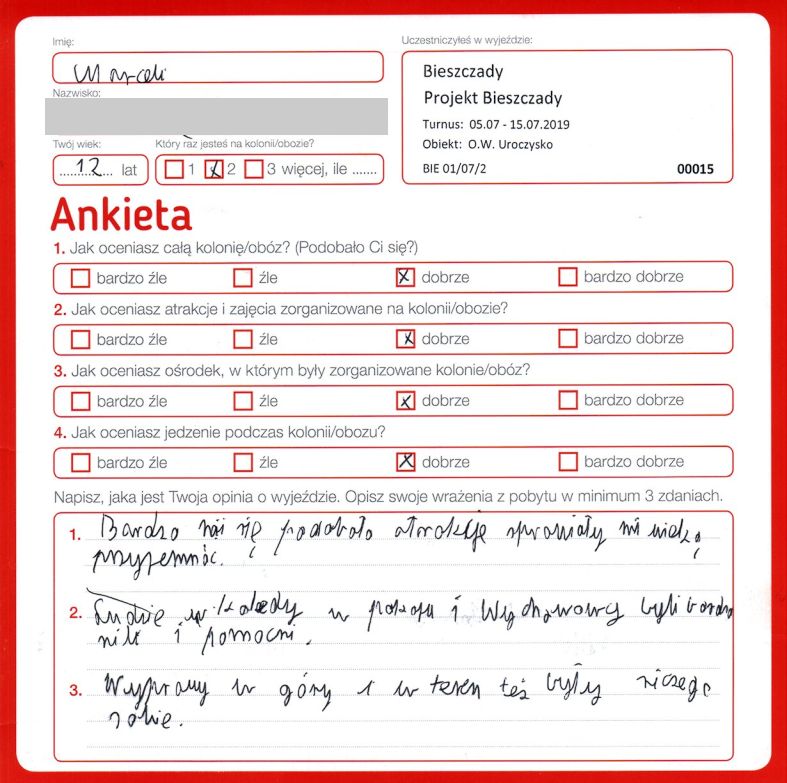 Imię:
Marceli
Uczestniczyłeś w wyjeździe:
Bieszczady
Projekt Bieszczady
Turnus: 05.07 - 15.07.2019
Obiekt: O.W. Uroczysko
BIE 01/07/2
00015
Nazwisko:
Twój wiek:
Który raz jesteś na kolonii/obozie?
12 lat
1 x 2 3 więcej, ile .......
Ankieta
1. Jak oceniasz całą kolonię/obóz? (Podobało Ci się?)
bardzo źle źle x dobrze bardzo dobrze
2. Jak oceniasz atrakcje i zajęcia zorganizowane na kolonii/obozie?
bardzo źle źle x dobrze bardzo dobrze
3. Jak oceniasz ośrodek, w którym były zorganizowane kolonie/obóz?
bardzo źle źle x dobrze bardzo dobrze
4. Jak oceniasz jedzenie podczas kolonii/obozu?
bardzo źle źle x dobrze bardzo dobrze
Napisz, jaka jest Twoja opinia o wyjeździe. Opisz swoje wrażenia z pobytu w minimum 3 zdaniach.
1. Bardzo mi się podobało atrakcje sprawiały mi
2. w pokoju i Wychowawcy byli bardzo
i pomocni.
3. Wyprawy w góry i w teren też były niczego
sobie.